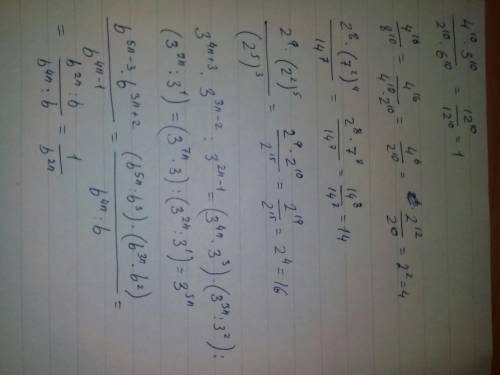 4¹⁰·3¹⁰ / 2¹⁰·6¹⁰ = 12¹⁰ / 12¹⁰ = 1
4¹⁶ / 8¹⁰ = 4¹⁶ / 4¹⁰·2¹⁰ = 4⁶ / 2¹⁰ = 2¹² / 2¹⁰ = 2² = 4
2⁸·(7²)⁴ / 14⁷ = 2⁸·7⁸ / 14⁷ = 14⁸ / 14⁷ = 14
2⁹·(2²)⁵ / (2⁵)³ = 2⁹·2¹⁰ / 2¹⁵ = 2¹⁹ / 2¹⁵ = 2⁴ = 16
3⁴ⁿ⁺³·3³ⁿ⁻² : 3²ⁿ⁻¹ = (3⁴ⁿ·3³)·(3³ⁿ:3²):
(3²ⁿ:3¹) = (3⁷ⁿ·3):(3²ⁿ:3¹) = 3⁵ⁿ
b⁵ⁿ⁻³·b³ⁿ⁺² / b⁴ⁿ⁻¹ = (b⁵ⁿ:b³)·(b³ⁿ·b²) / b⁴ⁿ:b =
= b²ⁿ:b / b⁴ⁿ:b = 1 / b²ⁿ